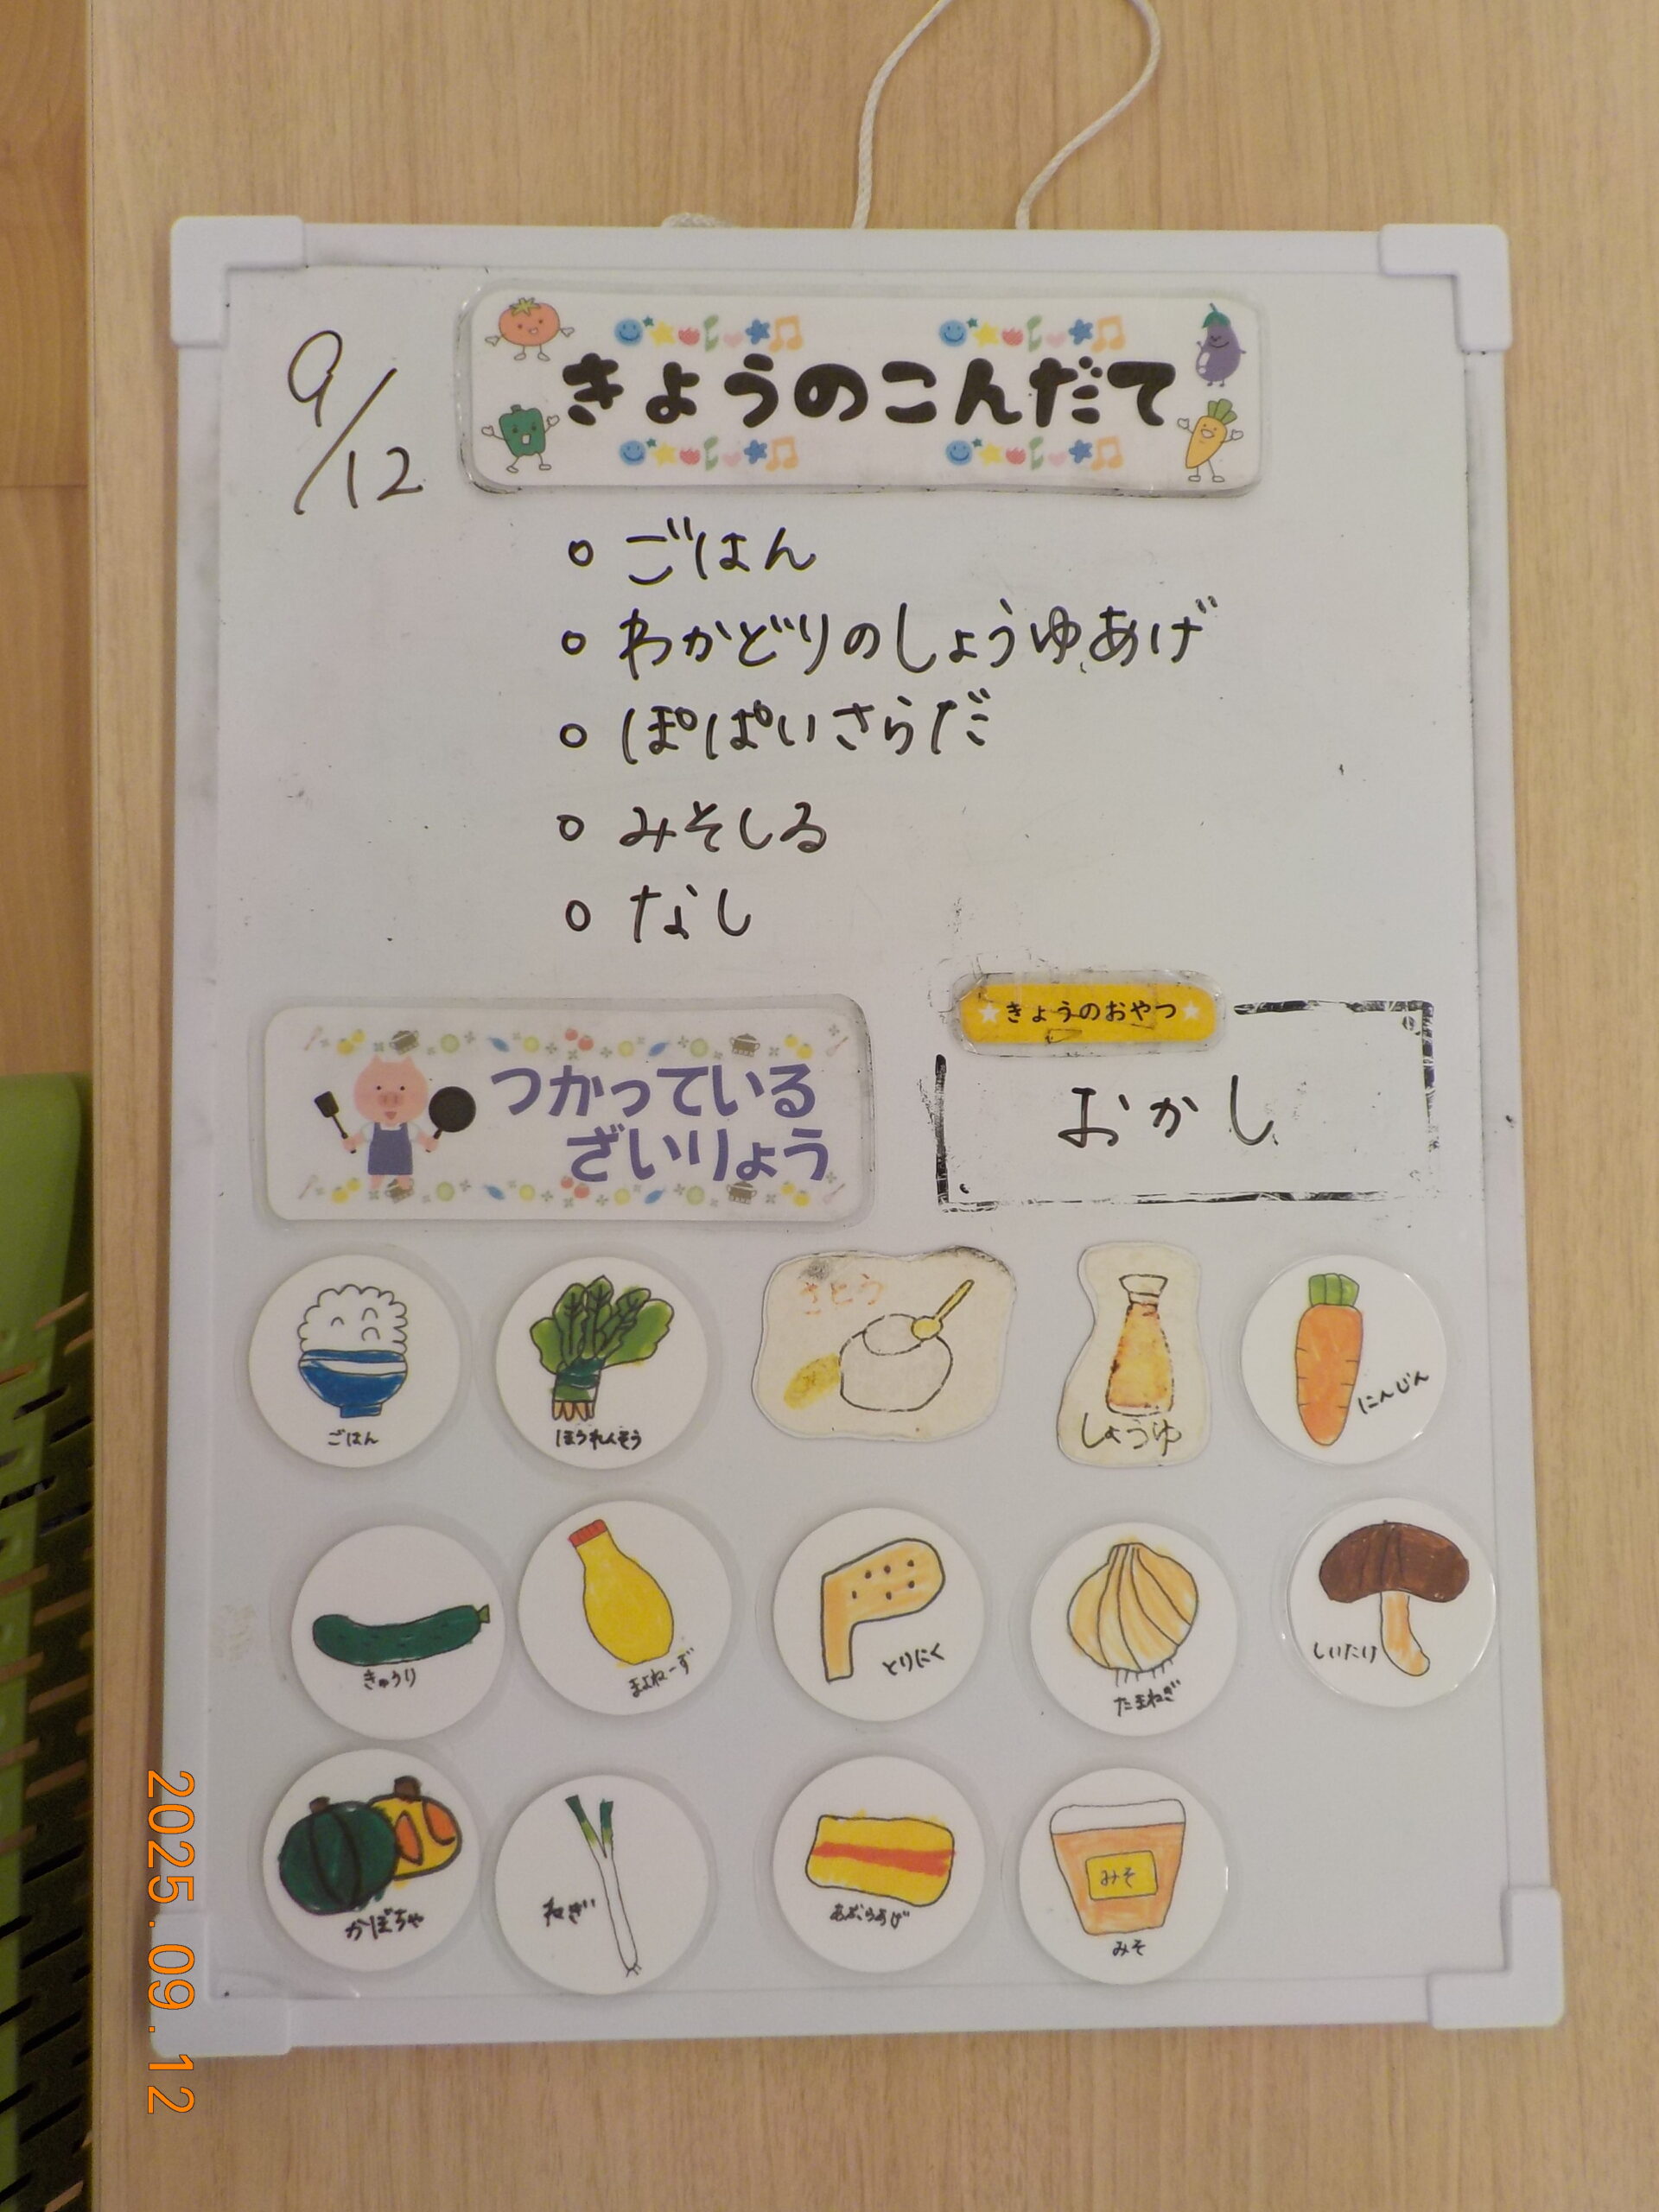 9/12
きょうのこんだて
○ ごはん
○ わかどりのしょうゆあげ
○ ぽぱいさらだ
○ みそしる
○ なし
きょうのおやつ
おかし
つかっている
ざいりょう
ごはん
ほうれんそう
さとう
しょうゆ
にんじん
きゅうり
まよねーず
とりにく
たまねぎ
しいたけ
かぼちゃ
ねぎ
あぶらあげ
みそ
みそ
2025.09.12